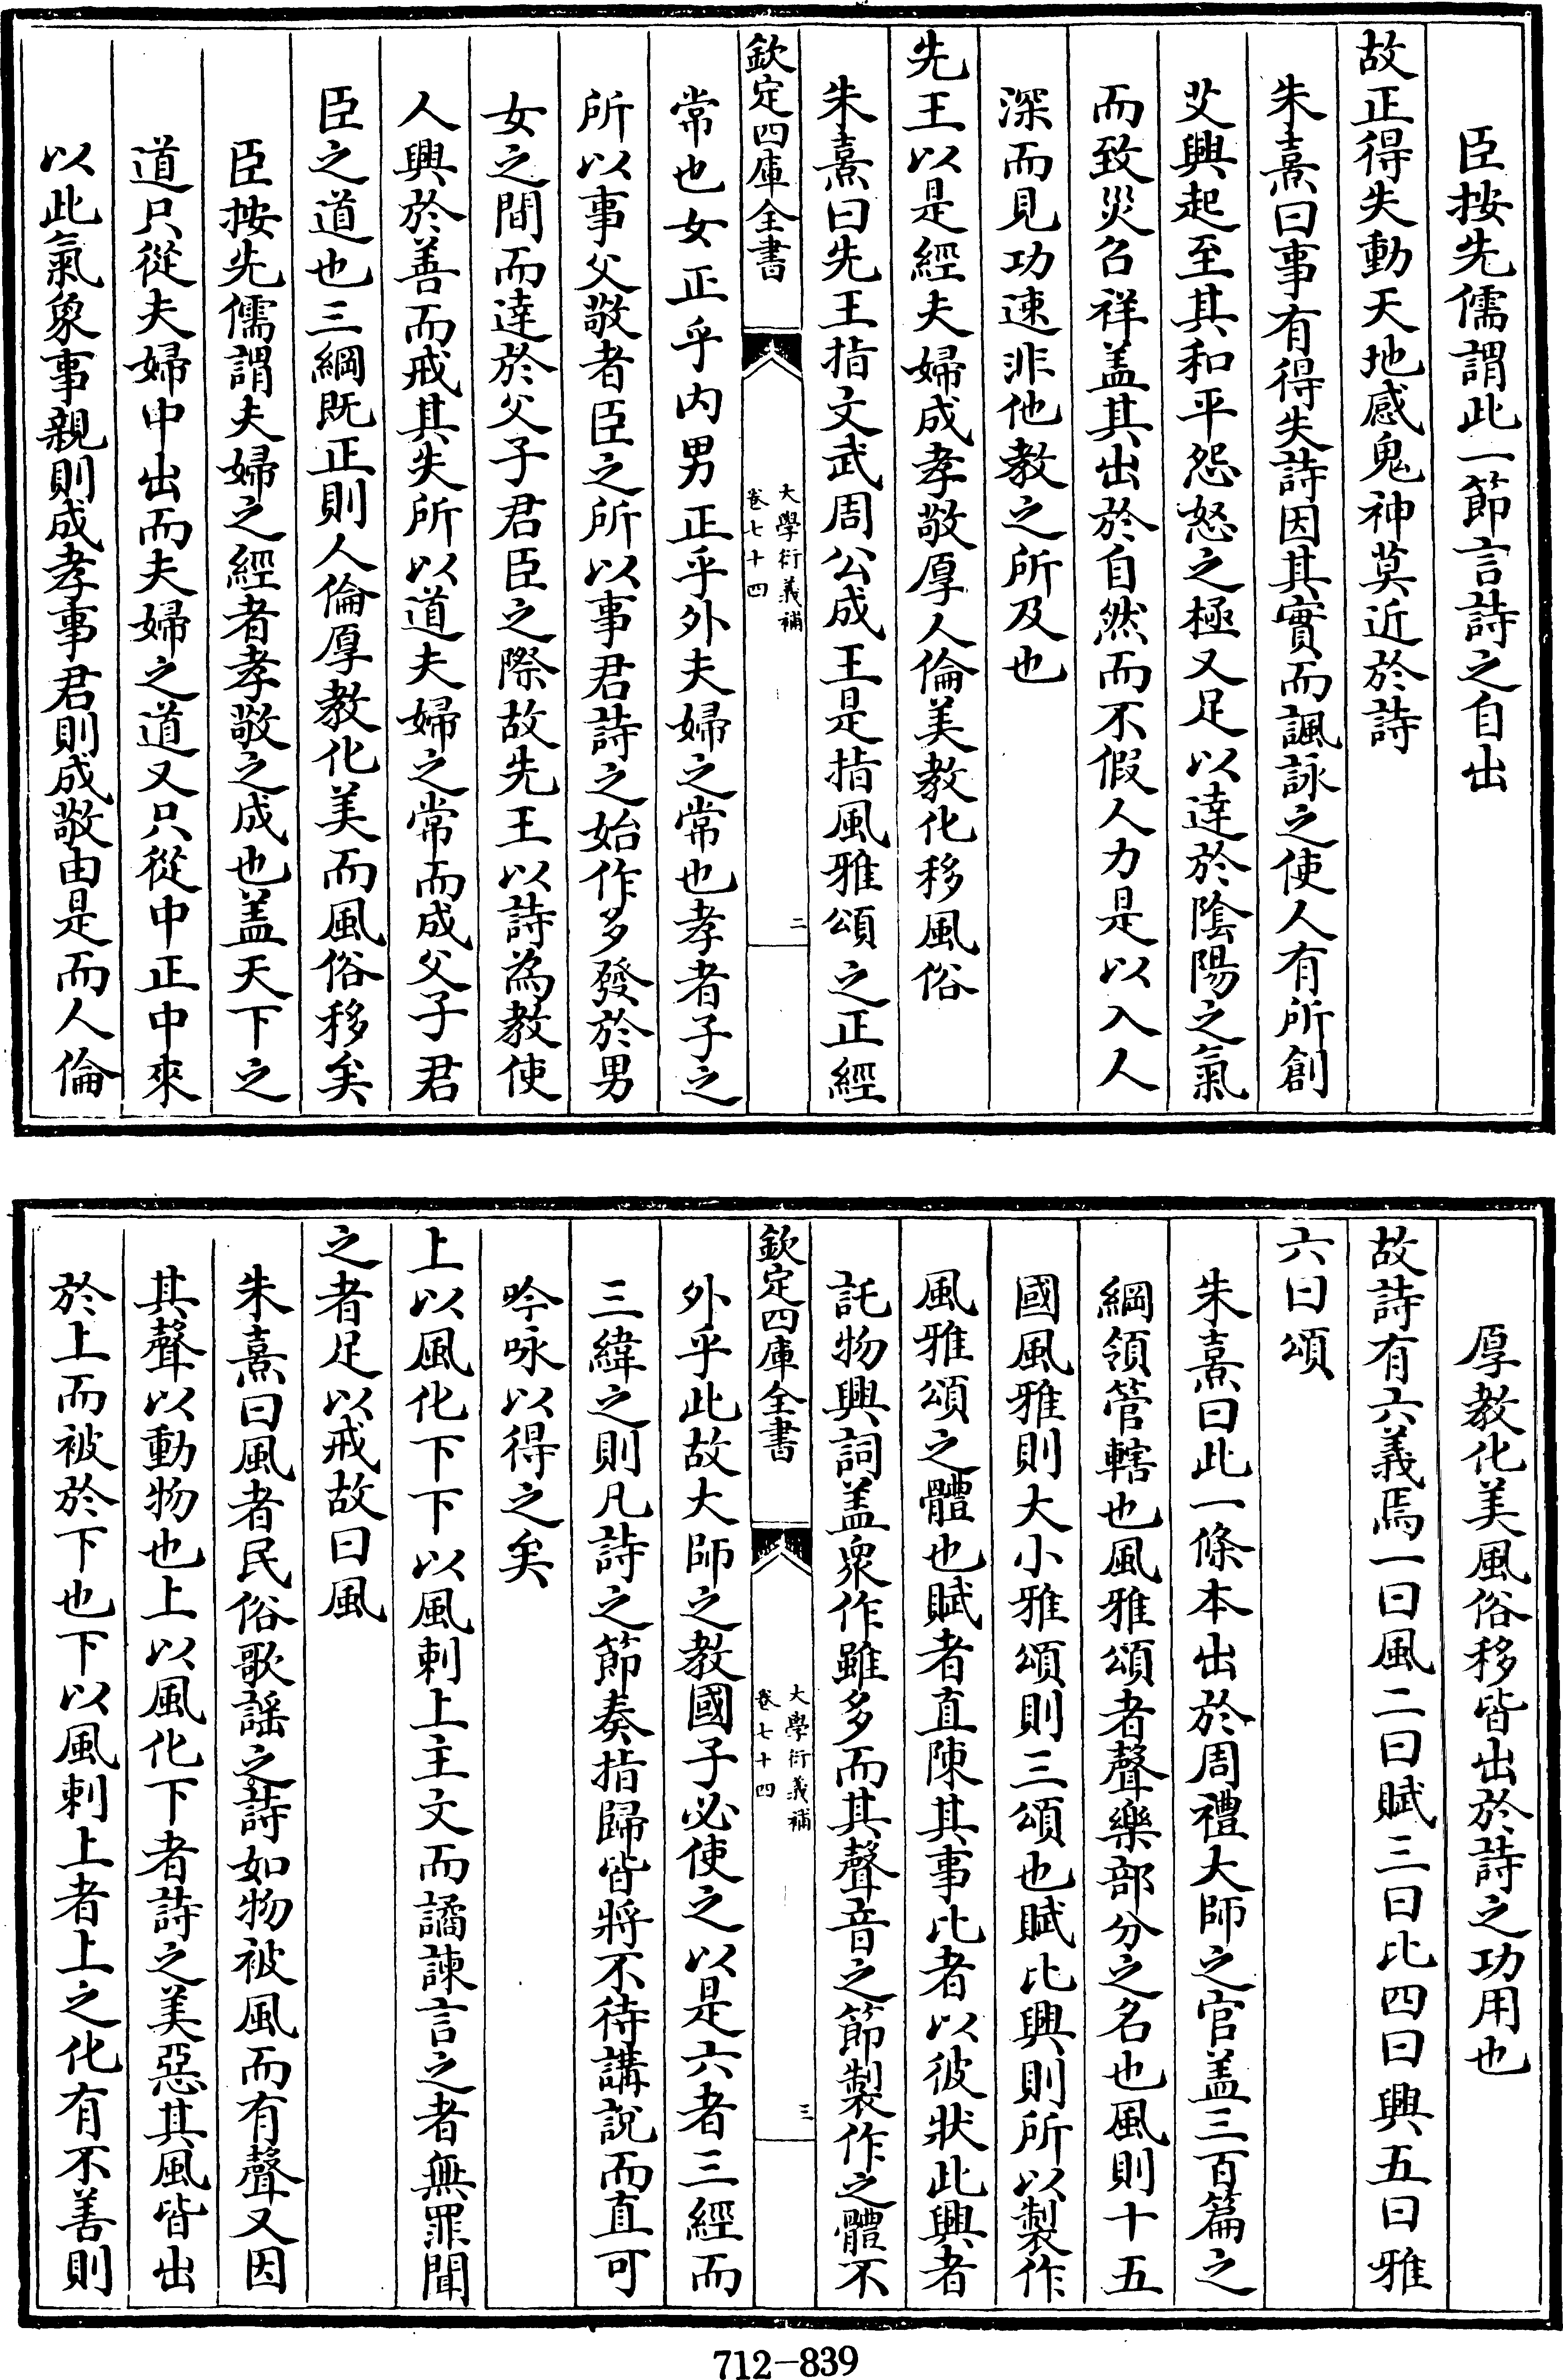 臣按先儒謂此一節言詩之自出
故正得失動天地感鬼神莫近於詩
朱熹曰事有得失詩因其實而諷詠之使人有所創
艾興起至其和平怨怒之極又足以達於陰陽之氣
而致災召祥盖其出於自然而不假人力是以入人
深而見功速非他教之所及也
先王以是經夫婦成孝敬厚人倫美教化移風俗
朱熹曰先王指文武周公成王是指風雅頌之正經
欽定四庫全書
大學衍義補
卷七十四
二
常也女正乎内男正乎外夫婦之常也孝者子之
所以事父敬者臣之所以事君詩之始作多發於男
女之間而達於父子君臣之際故先王以詩為教使
人興於善而戒其失所以道夫婦之常而成父子君
臣之道也三綱既正則人倫厚教化美而風俗移矣
臣按先儒謂夫婦之經者孝敬之成也盖天下之
道只從夫婦中出而夫婦之道又只從中正中來
以此氣象事親則成孝事君則成敬由是而人倫
厚教化美風俗移皆出於詩之功用也
故詩有六義焉一曰風二曰賦三曰比四曰興五曰雅
六曰頌
朱熹曰此一條本出於周禮大師之官盖三百篇之
綱領管轄也風雅頌者聲樂部分之名也風則十五
國風雅則大小雅頌則三頌也賦比興則所以製作
風雅頌之體也賦者直陳其事比者以彼狀此興者
託物興詞盖衆作雖多而其聲音之節製作之體不
欽定四庫全書
大學衍義補
卷七十四
三
外乎此故大師之教國子必使之以是六者三經而
三緯之則凡詩之節奏指歸皆將不待講說而直可
吟咏以得之矣
上以風化下下以風刺上主文而譎諫言之者無罪聞
之者足以戒故曰風
朱熹曰風者民俗歌謡之詩如物被風而有聲又因
其聲以動物也上以風化下者詩之美惡其風皆出
於上而被於下也下以風刺上者上之化有不善則
712-839